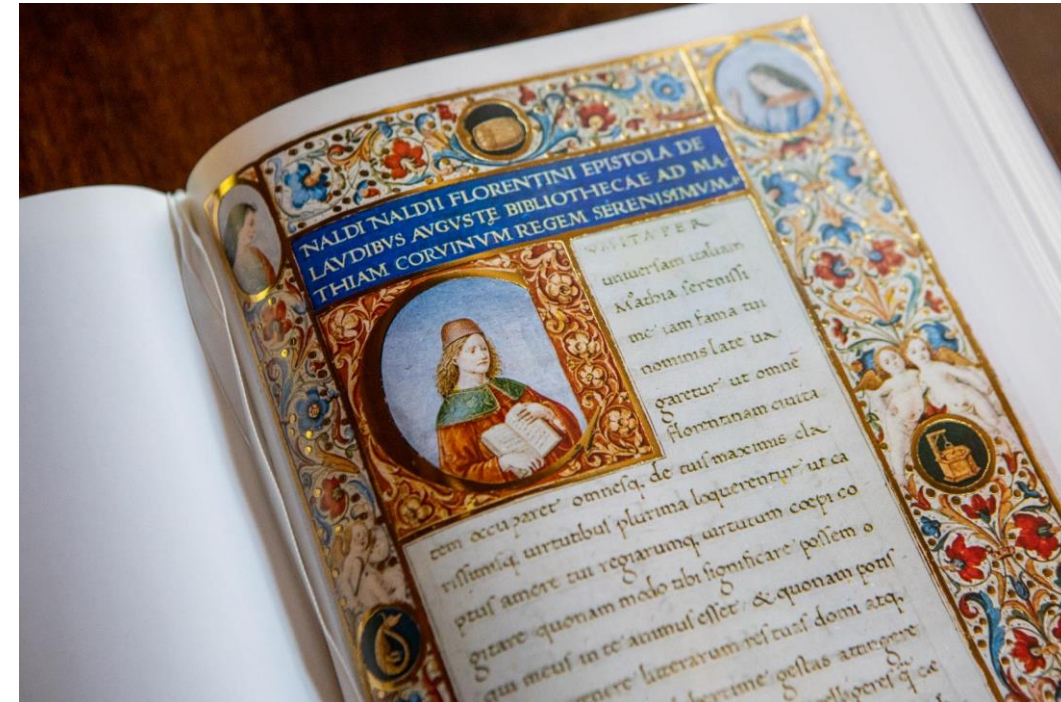 NALDI NALDII FLORENTINI EPISTOLA DE
LAVDIBVS AVGVSTE BIBLIOTHECAE AD MA-
THIAM CORVINVM REGEM SERENISIMVM.
VM ITA PER
uniuersam italiam
Mathia serenissi
me iam fama tui
nominis late ua
garetur ut omnē
florentinam ciuita
tem occuparet omnesq. de tuis maximis cla
rissimisq. uirtutibus plurima loquerentur ut ea
ptus amore tui regiarumq. uirtutum coepi co
gitare quonam modo tibi significare possem o
qui meus in te animus esset & quonam potis
litterarum res tuas domi atq.
gestas attingere